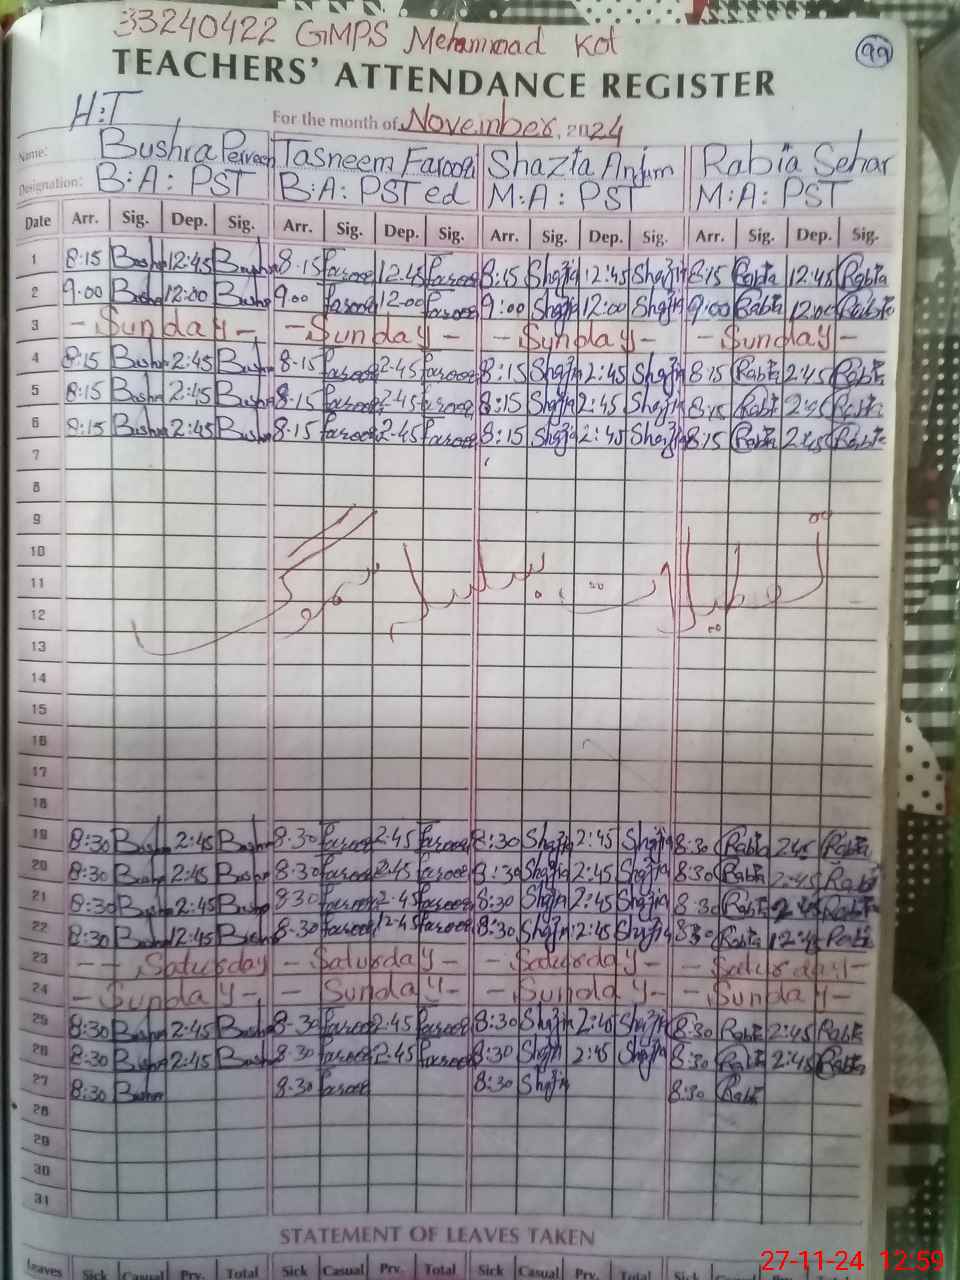 33240422 GMPS Mehammad Kot
99
TEACHERS' ATTENDANCE REGISTER
H:T
For the month of November, 2024
Name: Bushra Perveen Tasneem Farooqi Shazia Anjum Rabia Sehar
Designation: B:A: PST B:A: PST ed M:A: PST M:A: PST
Date Arr. Sig. Dep. Sig. Arr. Sig. Dep. Sig. Arr. Sig. Dep. Sig. Arr. Sig. Dep. Sig.
1 8:15 Bushra 12:45 Bushra 8-15 Farooq 12-45 Farooq 8:15 Shazia 12:45 Shazia 8:15 Rabia 12:45 Rabia
2 9:00 Bushra 12:00 Bushra 9:00 Farooq 12:00 Farooq 9:00 Shazia 12:00 Shazia 9:00 Rabia 12:00 Rabia
3 - Sunday - - Sunday - - Sunday - - Sunday -
4 8:15 Bushra 2:45 Bushra 8-15 Farooq 2-45 Farooq 8:15 Shazia 2:45 Shazia 8:15 Rabia 2:45 Rabia
5 8:15 Bushra 2:45 Bushra 8-15 Farooq 2-45 Farooq 8:15 Shazia 2:45 Shazia 8:15 Rabia 2:45 Rabia
6 8:15 Bushra 2:45 Bushra 8-15 Farooq 2-45 Farooq 8:15 Shazia 2:45 Shazia 8:15 Rabia 2:45 Rabia
7
8
9
10
11
12
13
14
15
16
17
18
19 8:30 Bushra 2:45 Bushra 8-30 Farooq 2-45 Farooq 8:30 Shazia 2:45 Shazia 8:30 Rabia 2:45 Rabia
20 8:30 Bushra 2:45 Bushra 8-30 Farooq 2-45 Farooq 8:30 Shazia 2:45 Shazia 8:30 Rabia 2:45 Rabia
21 8:30 Bushra 2:45 Bushra 8-30 Farooq 2-45 Farooq 8:30 Shazia 2:45 Shazia 8:30 Rabia 2:45 Rabia
22 8:30 Bushra 12:45 Bushra 8-30 Farooq 12-45 Farooq 8:30 Shazia 12:45 Shazia 8:30 Rabia 12:45 Rabia
23 - - Saturday - Saturday - - Saturday - - Saturday -
24 - Sunday - - Sunday - - Sunday - - Sunday -
25 8:30 Bushra 2:45 Bushra 8-30 Farooq 2:45 Farooq 8:30 Shazia 2:45 Shazia 8:30 Rabia 2:45 Rabia
26 8:30 Bushra 2:45 Bushra 8-30 Farooq 2-45 Farooq 8:30 Shazia 2:45 Shazia 8:30 Rabia 2:45 Rabia
27 8:30 Bushra 8-30 Farooq 8:30 Shazia 8:30 Rabia
28
29
30
31
STATEMENT OF LEAVES TAKEN
Leaves Sick Casual Prv. Total Sick Casual Prv. Total Sick Casual Prv. Total Sick Casual
27-11-24 12:59